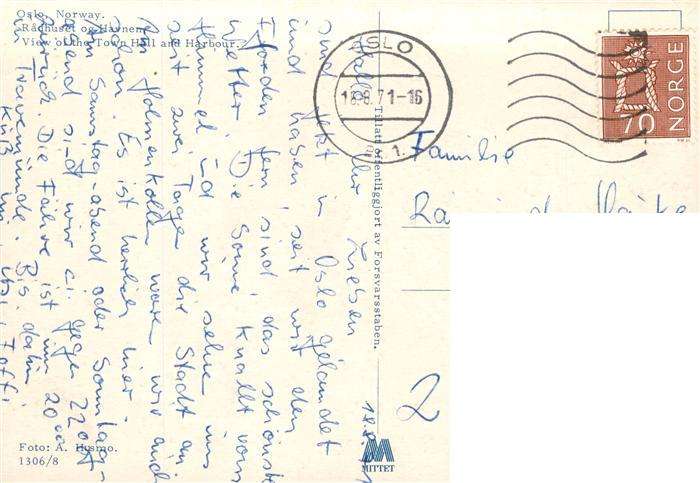 Oslo, Norway.
Rådhuset og Havnen.
View of the Town Hall and Harbour.
Hallo Ihr Lieben
sind jetzt in Oslo gelandet
und haben, seit wir den
Fjorden fern sind, das schönste
Wetter. Die Sonne knallt vom
Himmel und wir sehen uns
seit zwei Tagen die Stadt an.
Am Holmenkollen waren wir auch
schon. Es ist herrlich hier.
Am Samstag-abend oder Sonntag-
abend sind wir gegen 22.00
zurück. Die Fähre ist um 20.00
in Travemünde. Bis dahin
Kuß
Toffi
18.8.71
Foto: A. Husmo.
1306/8
Tillatt offentliggjort av Forsvarsstaben.
MITTET
OSLO
18.8.71-16
1.
NORGE
70
Familie
2